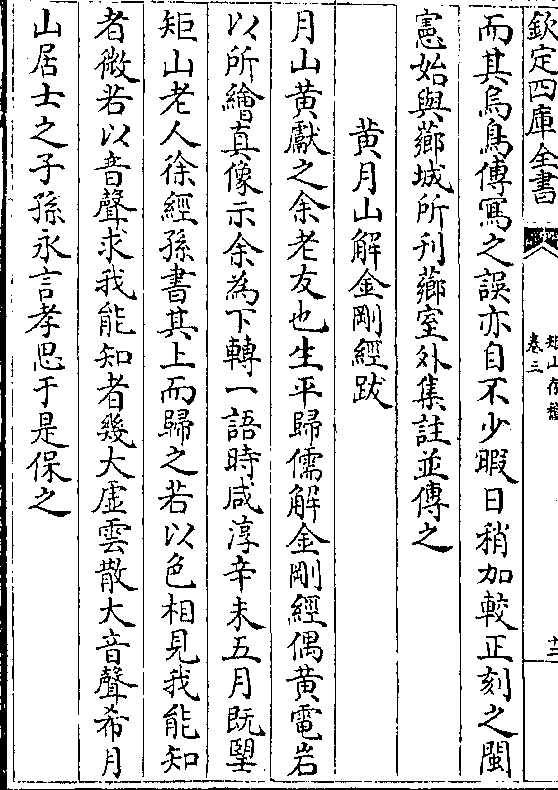 欽定四庫全書
矩山存稿
卷三
十三
而其烏鳥傳寫之誤亦自不少暇日稍加較正刻之閩
憲始與薌城所刊薌室外集註並傳之
黃月山解金剛經跋
月山黃獻之余老友也生平歸儒解金剛經偶黃電岩
以所繪真像示余為下轉一語時咸淳辛未五月既朢
矩山老人徐經孫書其上而歸之若以色相見我能知
者微若以音聲求我能知者幾大虛雲散大音聲希月
山居士之子孫永言孝思于是保之